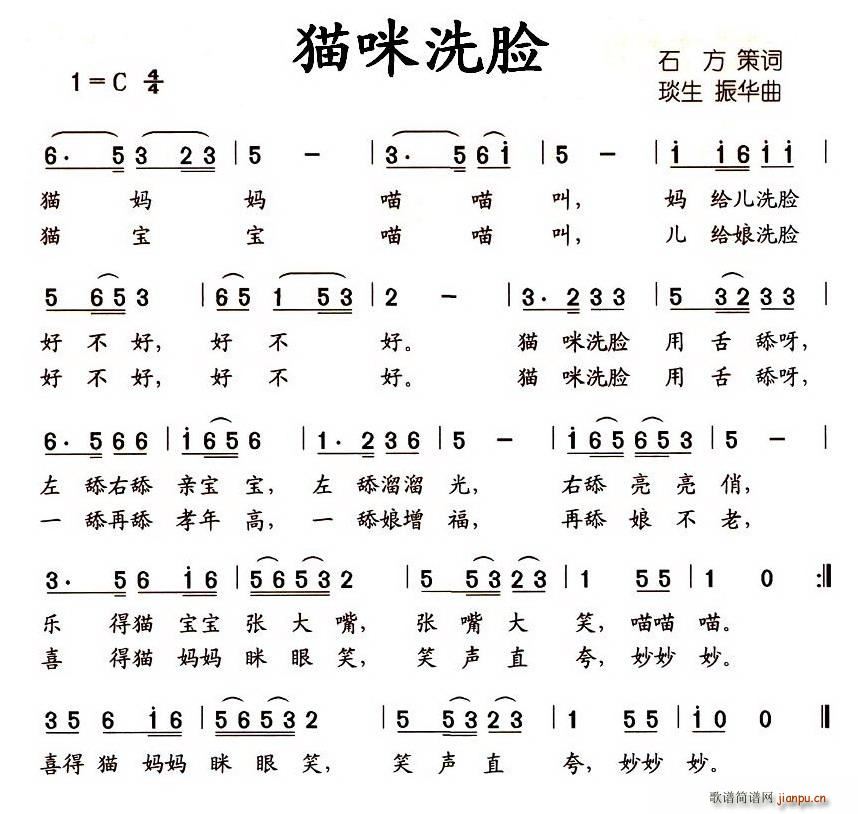 猫咪洗脸
1=C 4/4
石 方 策词
琰生 振华曲
6· 5 3 2 3 | 5 - | 3· 5 6 i | 5 - | i i i 6 i i |
猫 妈 妈 喵 喵 叫， 妈 给儿洗脸
猫 宝 宝 喵 喵 叫， 儿 给娘洗脸
5 6 5 3 | 6 5 1 5 3 | 2 - | 3· 2 3 3 | 5 3 2 3 3 |
好 不 好， 好 不 好。 猫 咪洗脸 用 舌 舔呀，
好 不 好， 好 不 好。 猫 咪洗脸 用 舌 舔呀，
6· 5 6 6 | i 6 5 6 | 1· 2 3 6 | 5 - | i 6 5 6 5 3 | 2 - |
左 舔右舔 亲宝 宝， 左 舔溜溜 光， 右舔 亮 亮 俏，
一 舔再舔 孝年 高， 一 舔娘增 福， 再舔 娘 不 老，
3· 5 6 i 6 | 5 6 5 3 2 | 5 5 3 2 3 | 1 5 5 | 1 0 :||
乐 得猫 宝宝 张 大 嘴， 张 嘴 大 笑， 喵喵 喵。
喜 得猫 妈妈 眯 眼 笑， 笑 声 直 夸， 妙妙 妙。
3 5 6 i 6 | 5 6 5 3 2 | 5 5 3 2 3 | 1 5 5 | i 0 0 ||
喜得 猫 妈妈 眯 眼 笑， 笑 声 直 夸， 妙妙 妙。
歌谱简谱网 jianpu.cn